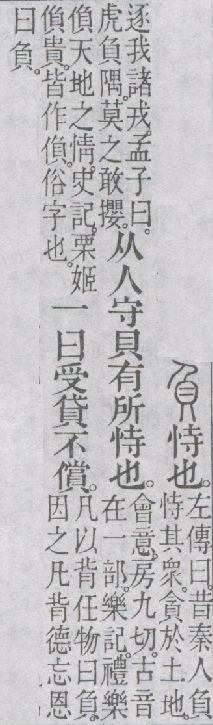 負恃也。
左傳曰。昔秦人負
恃其衆。貪於土地。
逐我諸戎。孟子曰。
虎負隅。莫之敢攖。
从人守貝有所恃也。
會意。房九切。古音
在一部。樂記。禮樂
偩天地之情。史記。栗姬
偩貴。皆作偩。俗字也。
一曰受貸不償。
凡以背任物曰負。
因之凡背德忘恩
曰負。